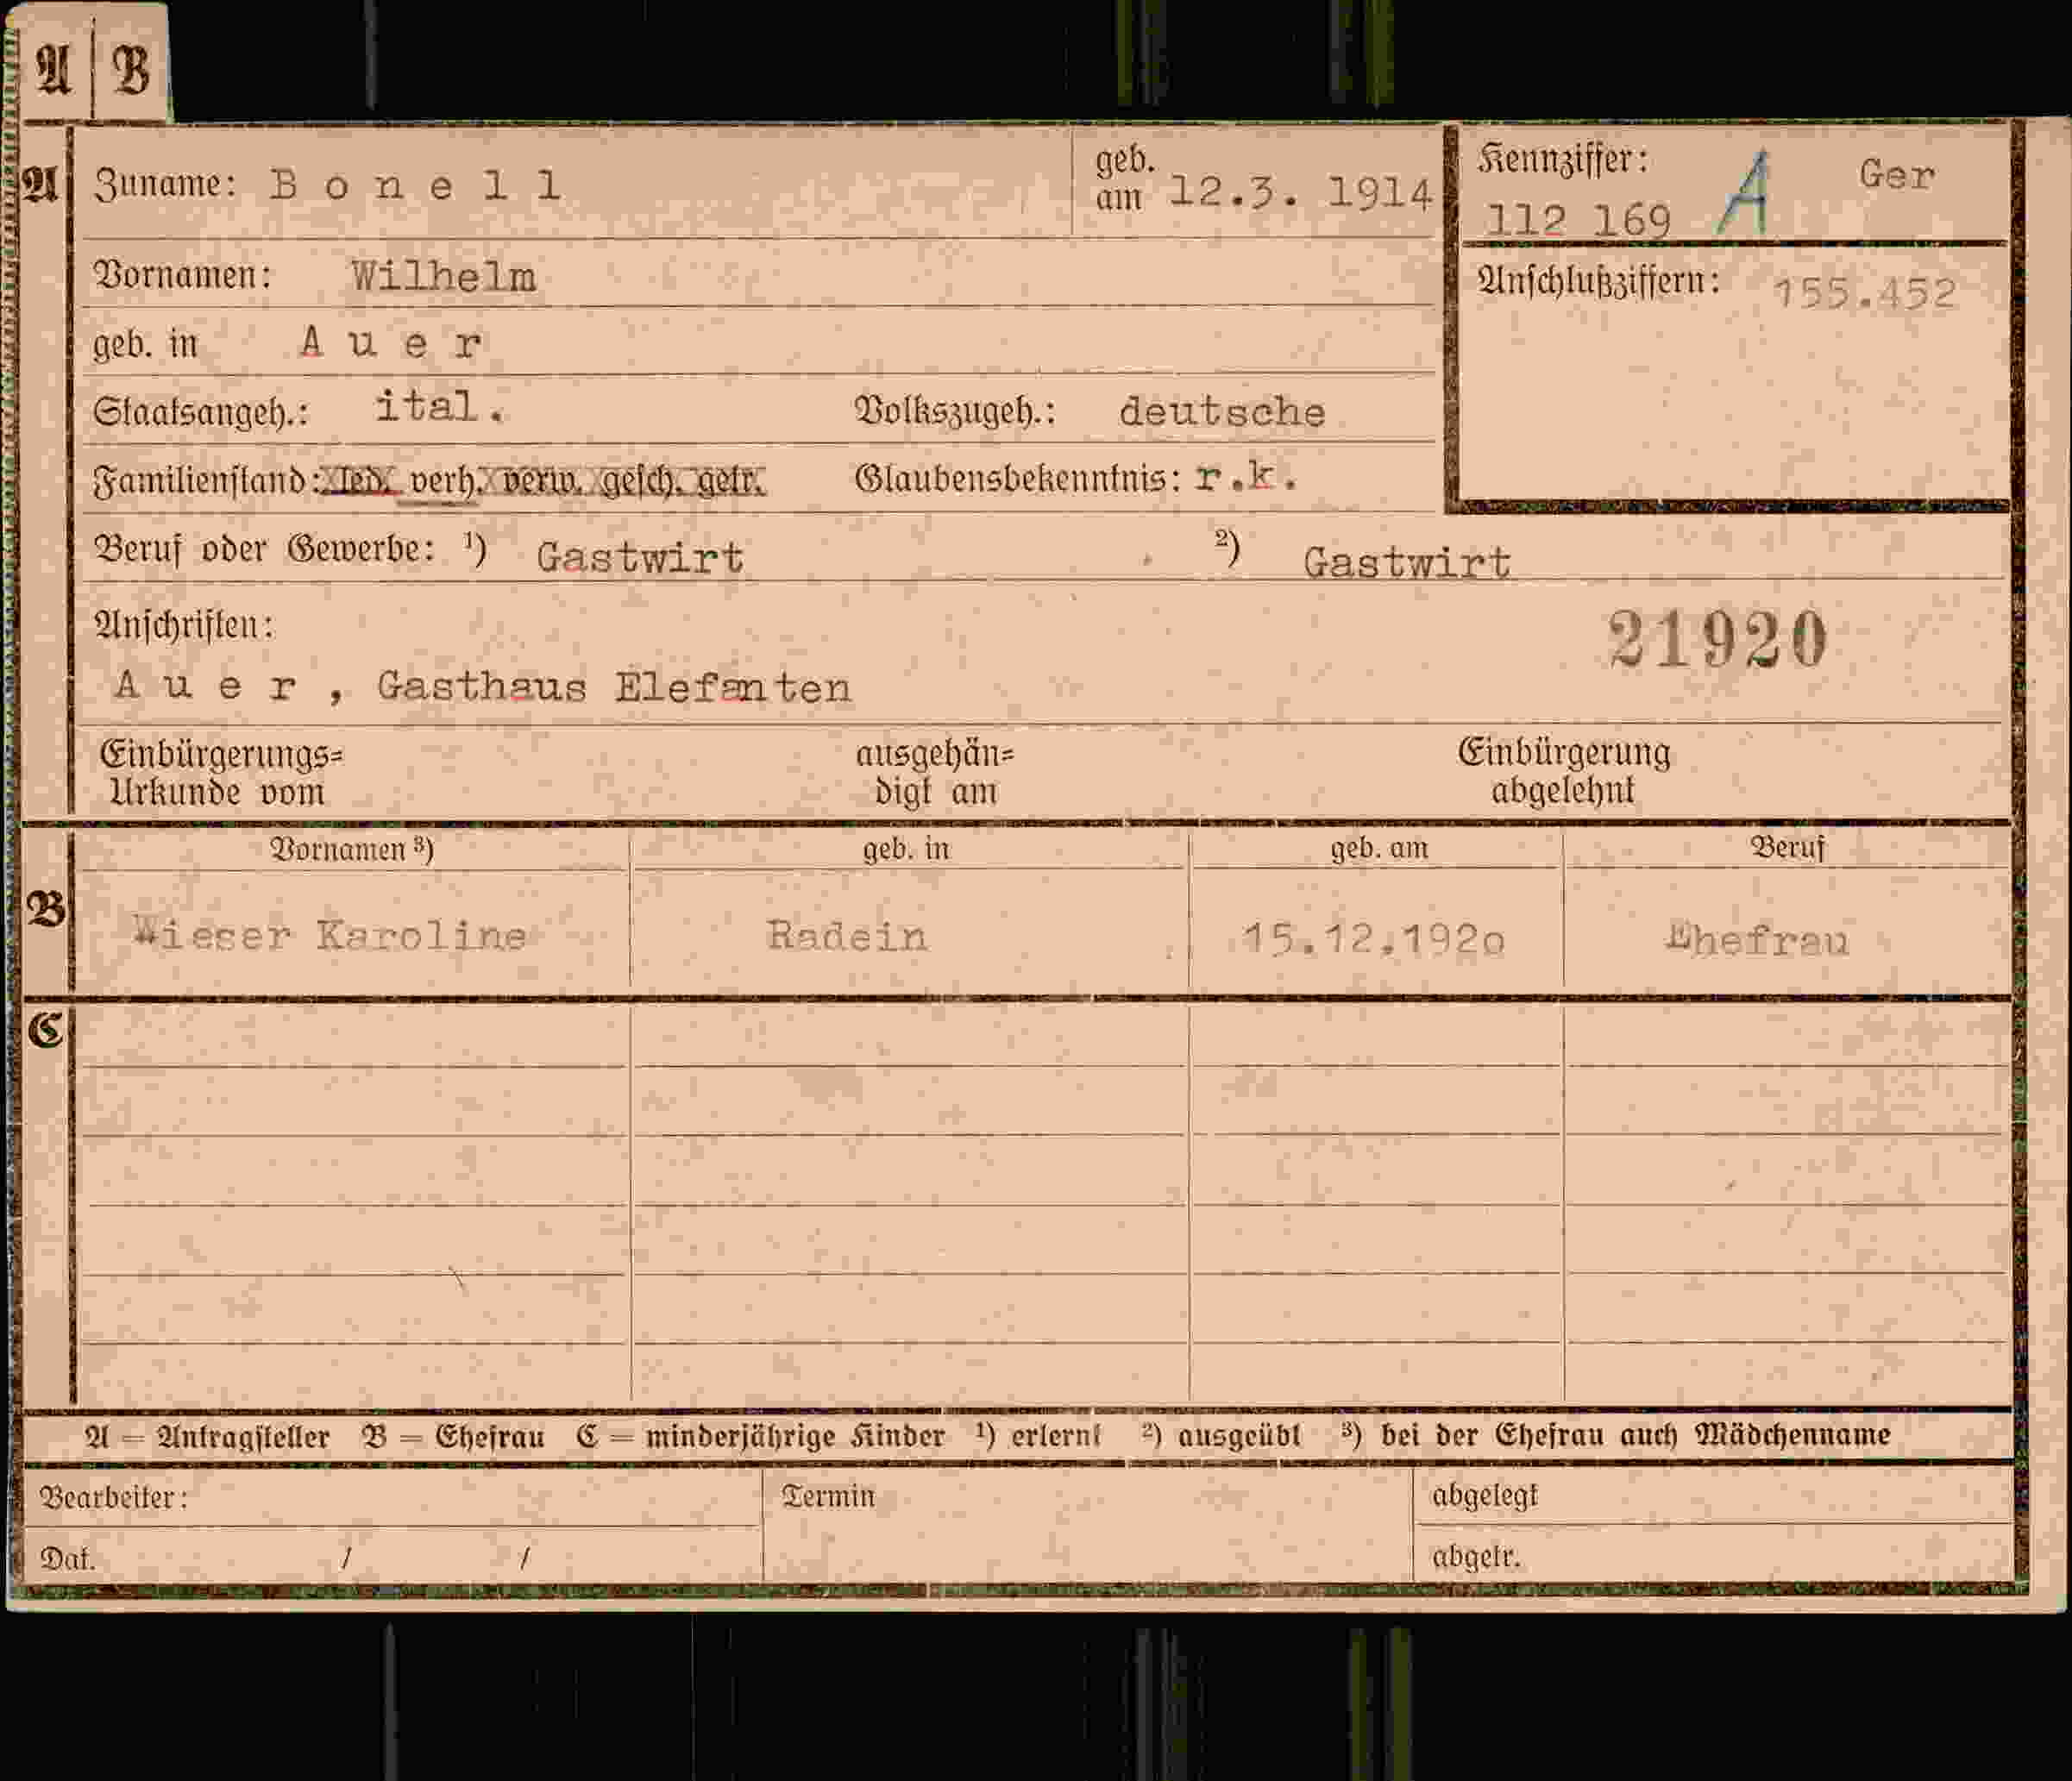 A | B
A Zuname: Bonell geb. am 12.3. 1914 Kennziffer: 112 169 A Ger
Vornamen: Wilhelm Anschlußziffern: 155.452
geb. in Auer
Staatsangeh.: ital. Volkszugeh.: deutsche
Familienstand: led. verh. verw. gesch. getr. Glaubensbekenntnis: r.k.
Beruf oder Gewerbe: ¹) Gastwirt ²) Gastwirt
Anschriften: 21920
Auer, Gasthaus Elefanten
Einbürgerungs= ausgehän= Einbürgerung
Urkunde vom digt am abgelehnt
Vornamen ³) geb. in geb. am Beruf
B Wieser Karoline Radein 15.12.1920 Ehefrau
C
A = Antragsteller B = Ehefrau C = minderjährige Kinder ¹) erlernt ²) ausgeübt ³) bei der Ehefrau auch Mädchenname
Bearbeiter: Termin abgelegt
Dat. / / abgetr.